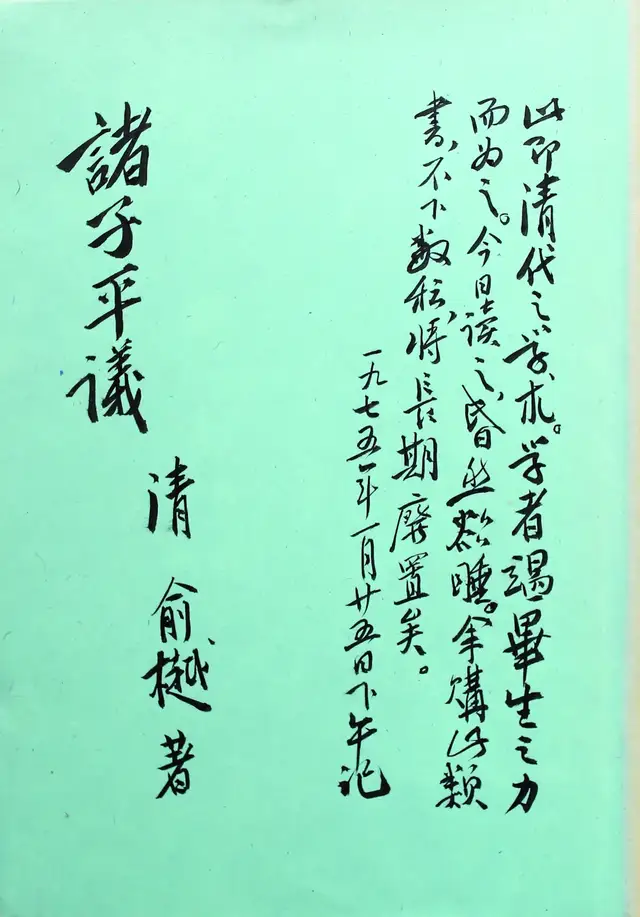 此即清代之学术。学者竭畢生之力
而为之。今日读之,昏然欲睡。余購此类
書,不下数种,将長期廢置矣。
一九七五年一月廿五日下午记
諸子平議
清 俞樾 著